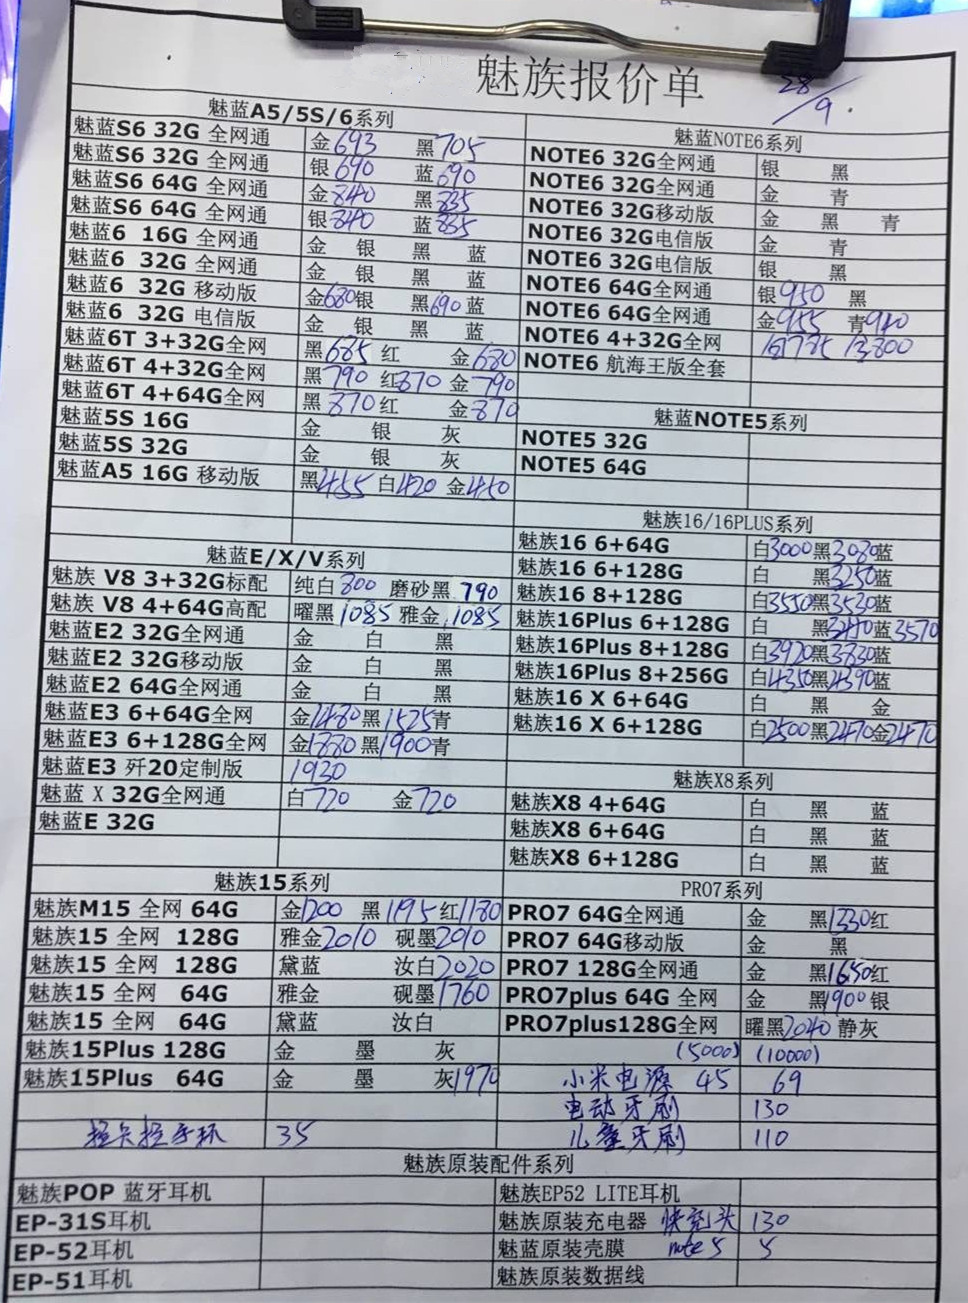 魅族报价单
28/9.
魅蓝A5/5S/6系列
魅蓝S6 32G 全网通 金693 黑705
魅蓝S6 32G 全网通 银690 蓝690
魅蓝S6 64G 全网通 金840 黑835
魅蓝S6 64G 全网通 银840 蓝835
魅蓝6 16G 全网通 金 银 黑 蓝
魅蓝6 32G 全网通 金 银 黑 蓝
魅蓝6 32G 移动版 金680银 黑690蓝
魅蓝6 32G 电信版 金 银 黑 蓝
魅蓝6T 3+32G全网 黑685 红 金680
魅蓝6T 4+32G全网 黑790 红870 金790
魅蓝6T 4+64G全网 黑870红 金870
魅蓝5S 16G 金 银 灰
魅蓝5S 32G 金 银 灰
魅蓝A5 16G 移动版 黑455 白420 金450
魅蓝E/X/V系列
魅族 V8 3+32G标配 纯白800 磨砂黑790
魅族 V8 4+64G高配 曜黑1085 雅金1085
魅蓝E2 32G全网通 金 白 黑
魅蓝E2 32G移动版 金 白 黑
魅蓝E2 64G全网通 金 白 黑
魅蓝E3 6+64G全网 金1480黑1525青
魅蓝E3 6+128G全网 金1880黑1900青
魅蓝E3 歼20定制版 1930
魅蓝 X 32G全网通 白720 金720
魅蓝E 32G
魅族15系列
魅族M15 全网 64G 金1200 黑1195红1180
魅族15 全网 128G 雅金2010 砚墨2010
魅族15 全网 128G 黛蓝 汝白2020
魅族15 全网 64G 雅金 砚墨1760
魅族15 全网 64G 黛蓝 汝白
魅族15Plus 128G 金 墨 灰
魅族15Plus 64G 金 墨 灰1970
手环 35
魅蓝NOTE6系列
NOTE6 32G全网通 银 黑
NOTE6 32G全网通 金 青
NOTE6 32G移动版 金 黑 青
NOTE6 32G电信版 金 青
NOTE6 32G电信版 银 黑
NOTE6 64G全网通 银950 黑
NOTE6 64G全网通 金955 青940
NOTE6 4+32G全网
NOTE6 航海王版全套
魅蓝NOTE5系列
NOTE5 32G
NOTE5 64G
魅族16/16PLUS系列
魅族16 6+64G 白3000黑3080蓝
魅族16 6+128G 白 黑3250蓝
魅族16 8+128G 白3550黑3530蓝
魅族16Plus 6+128G 白 黑 蓝3570
魅族16Plus 8+128G 白3920黑3830蓝
魅族16Plus 8+256G 白4350黑4390蓝
魅族16 X 6+64G 白 黑 金
魅族16 X 6+128G 白2500黑2470金2470
魅族X8系列
魅族X8 4+64G 白 黑 蓝
魅族X8 6+64G 白 黑 蓝
魅族X8 6+128G 白 黑 蓝
PRO7系列
PRO7 64G全网通 金 黑1330红
PRO7 64G移动版 金 黑
PRO7 128G全网通 金 黑1650红
PRO7plus 64G 全网 金 黑1900银
PRO7plus128G全网 曜黑2040 静灰
(5000) (10000)
小米电源 45 69
电动牙刷 130
儿童牙刷 110
魅族原装配件系列
魅族POP 蓝牙耳机 魅族EP52 LITE耳机
EP-31S耳机 魅族原装充电器 快充头 130
EP-52耳机 魅蓝原装壳膜 note5 5
EP-51耳机 魅族原装数据线